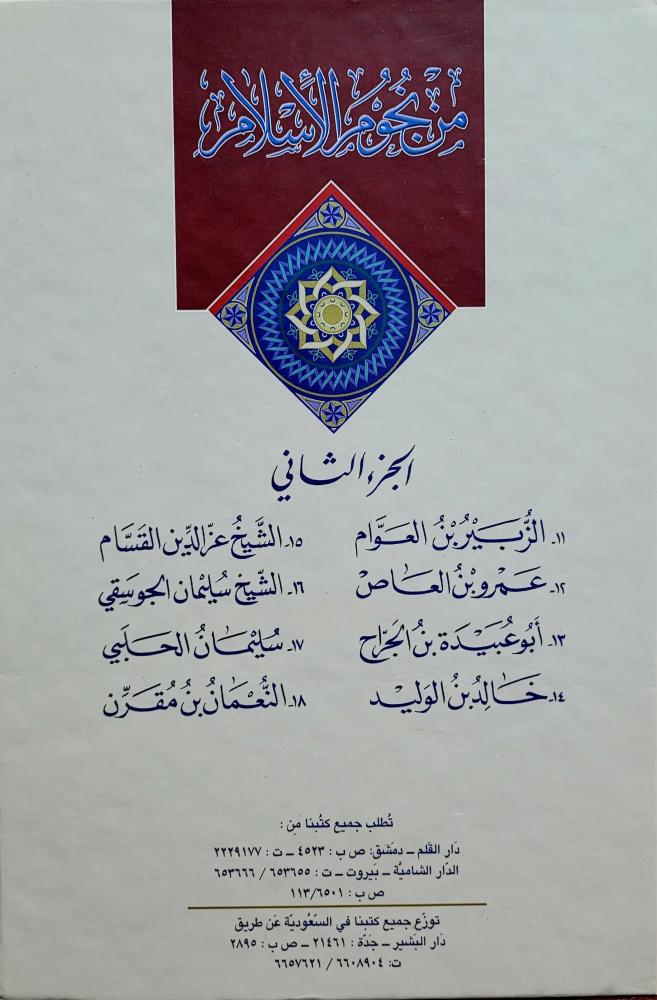 من نجوم الإسلام
الجزء الثاني
١١- الزُّبَيْرُ بْنُ العَوَّام
١٢- عَمْرُو بْنُ العَاصْ
١٣- أَبُو عُبَيْدَة بنُ الجَرَّاح
١٤- خَالِدُ بنُ الوَليْد
١٥- الشَّيخُ عزّ الدِّين القَسَّام
١٦- الشّيخ سُليْمان الجوسَقي
١٧- سُليْمَانُ الحَلَبي
١٨- النُّعْمَانُ بنُ مُقَرِّن
تُطلب جميع كتُبنا مِن :
دَار القَلم – دمَشق: ص ب : ٤٥٢٣ – ت : ٢٢٢٩١٧٧
الدّار الشاميَّة – بَيروت – ت : ٦٥٣٦٥٥ / ٦٥٣٦٦٦
ص ب : ١١٣/٦٥٠١
توزّع جميع كتبنا في السّعُوديّة عَن طريق
دَار البَشير – جَدّة : ٢١٤٦١ – ص ب : ٢٨٩٥
ت: ٦٦٠٨٩٠٤ / ٦٦٥٧٦٢١